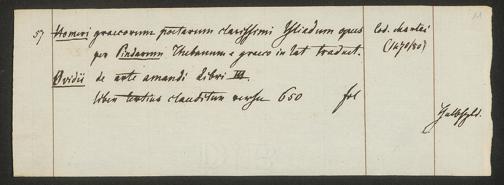 11
57 Homeri graecorum poetarum clarissimi Yliadum opus Cod. chartac
per Pindarum Thebanum e graeco in lat traduct. (1470/80)
Ovidii de arte amandi libri III.
liber tertius clauditur versu 650 fol
Halbfzbd.